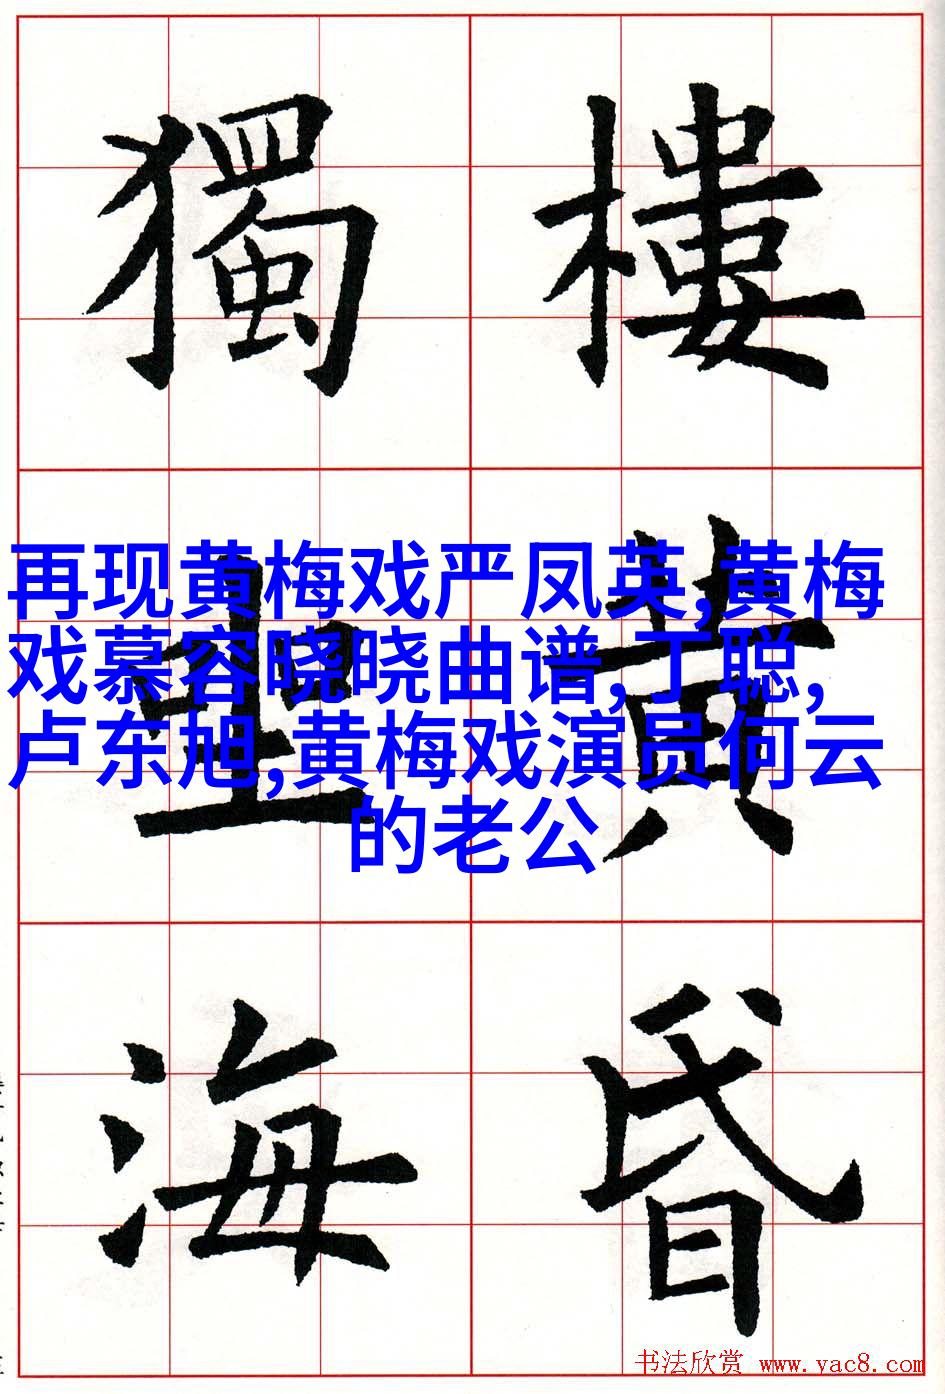 樓黄昏
獨坐海
再现黄梅戏严凤英,黄梅
戏慕容晓晓曲谱,丁聪,
卢东旭,黄梅戏演员何云
的老公
书法欣赏 www.yac8.com